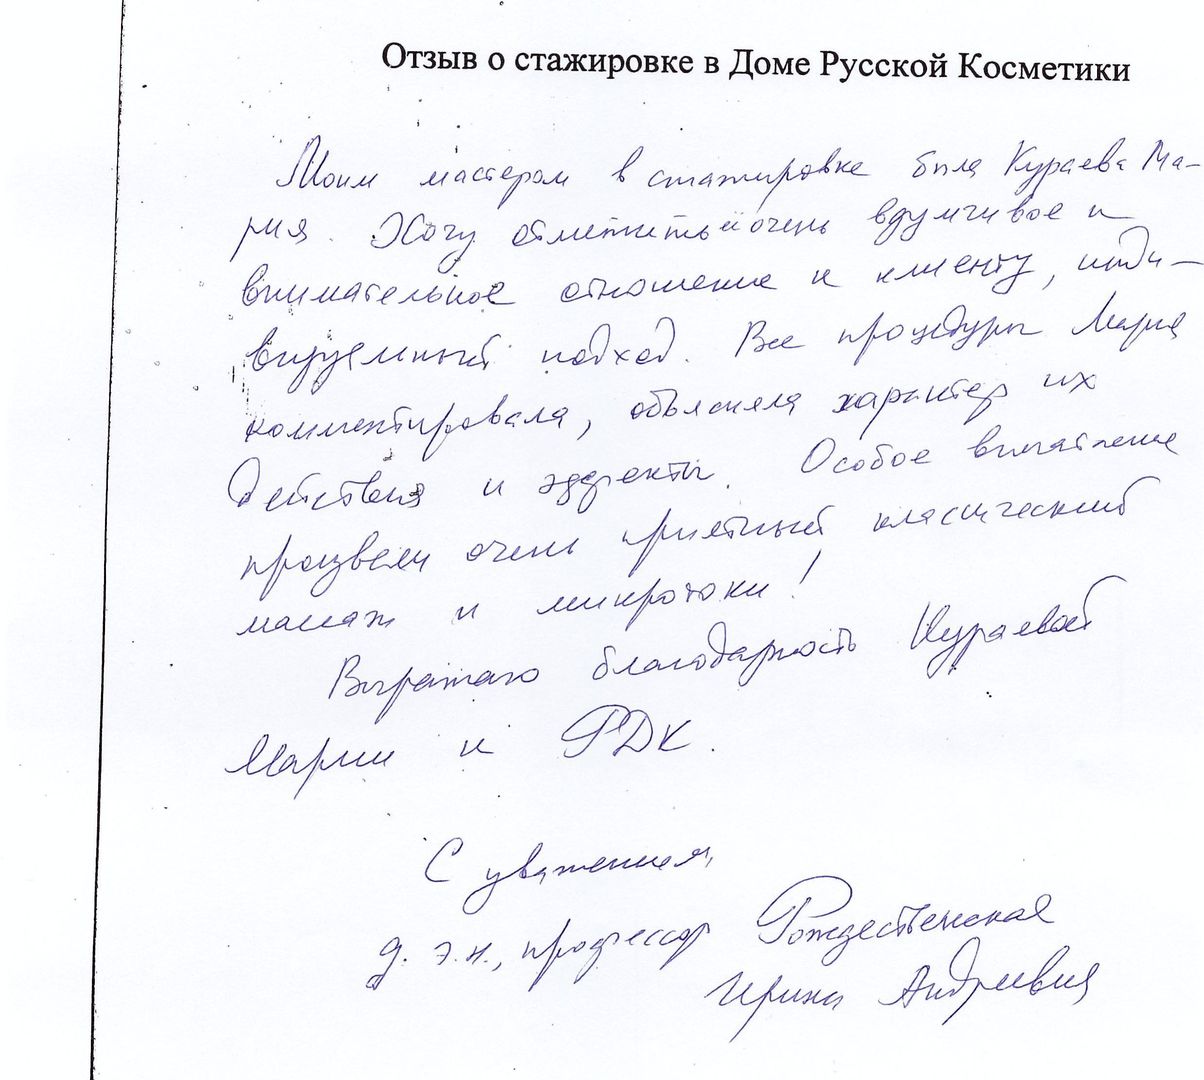 Отзыв о стажировке в Доме Русской Косметики
Моим мастером в стажировке была Кураева Ма-
рия. Хочу отметить её очень вдумчивое и
внимательное отношение к клиенту, инди-
видуальный подход. Все процедуры Мария
комментировала, объясняла характер их
действия и эффекты. Особое впечатление
произвели очень приятный классический
массаж и микротоки!
Выражаю благодарность Кураевой
Марии и РДК.
С уважением,
д. э.н., профессор Рождественская
Ирина Андреевна